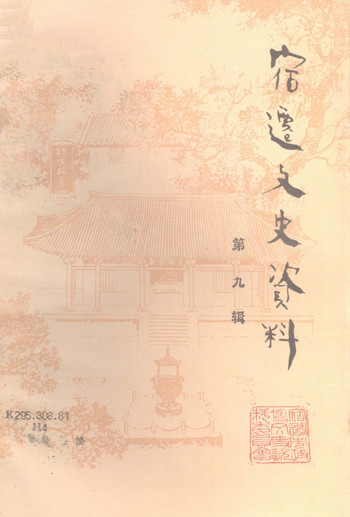 宿迁文史资料
第九辑
K295.308.81
H4